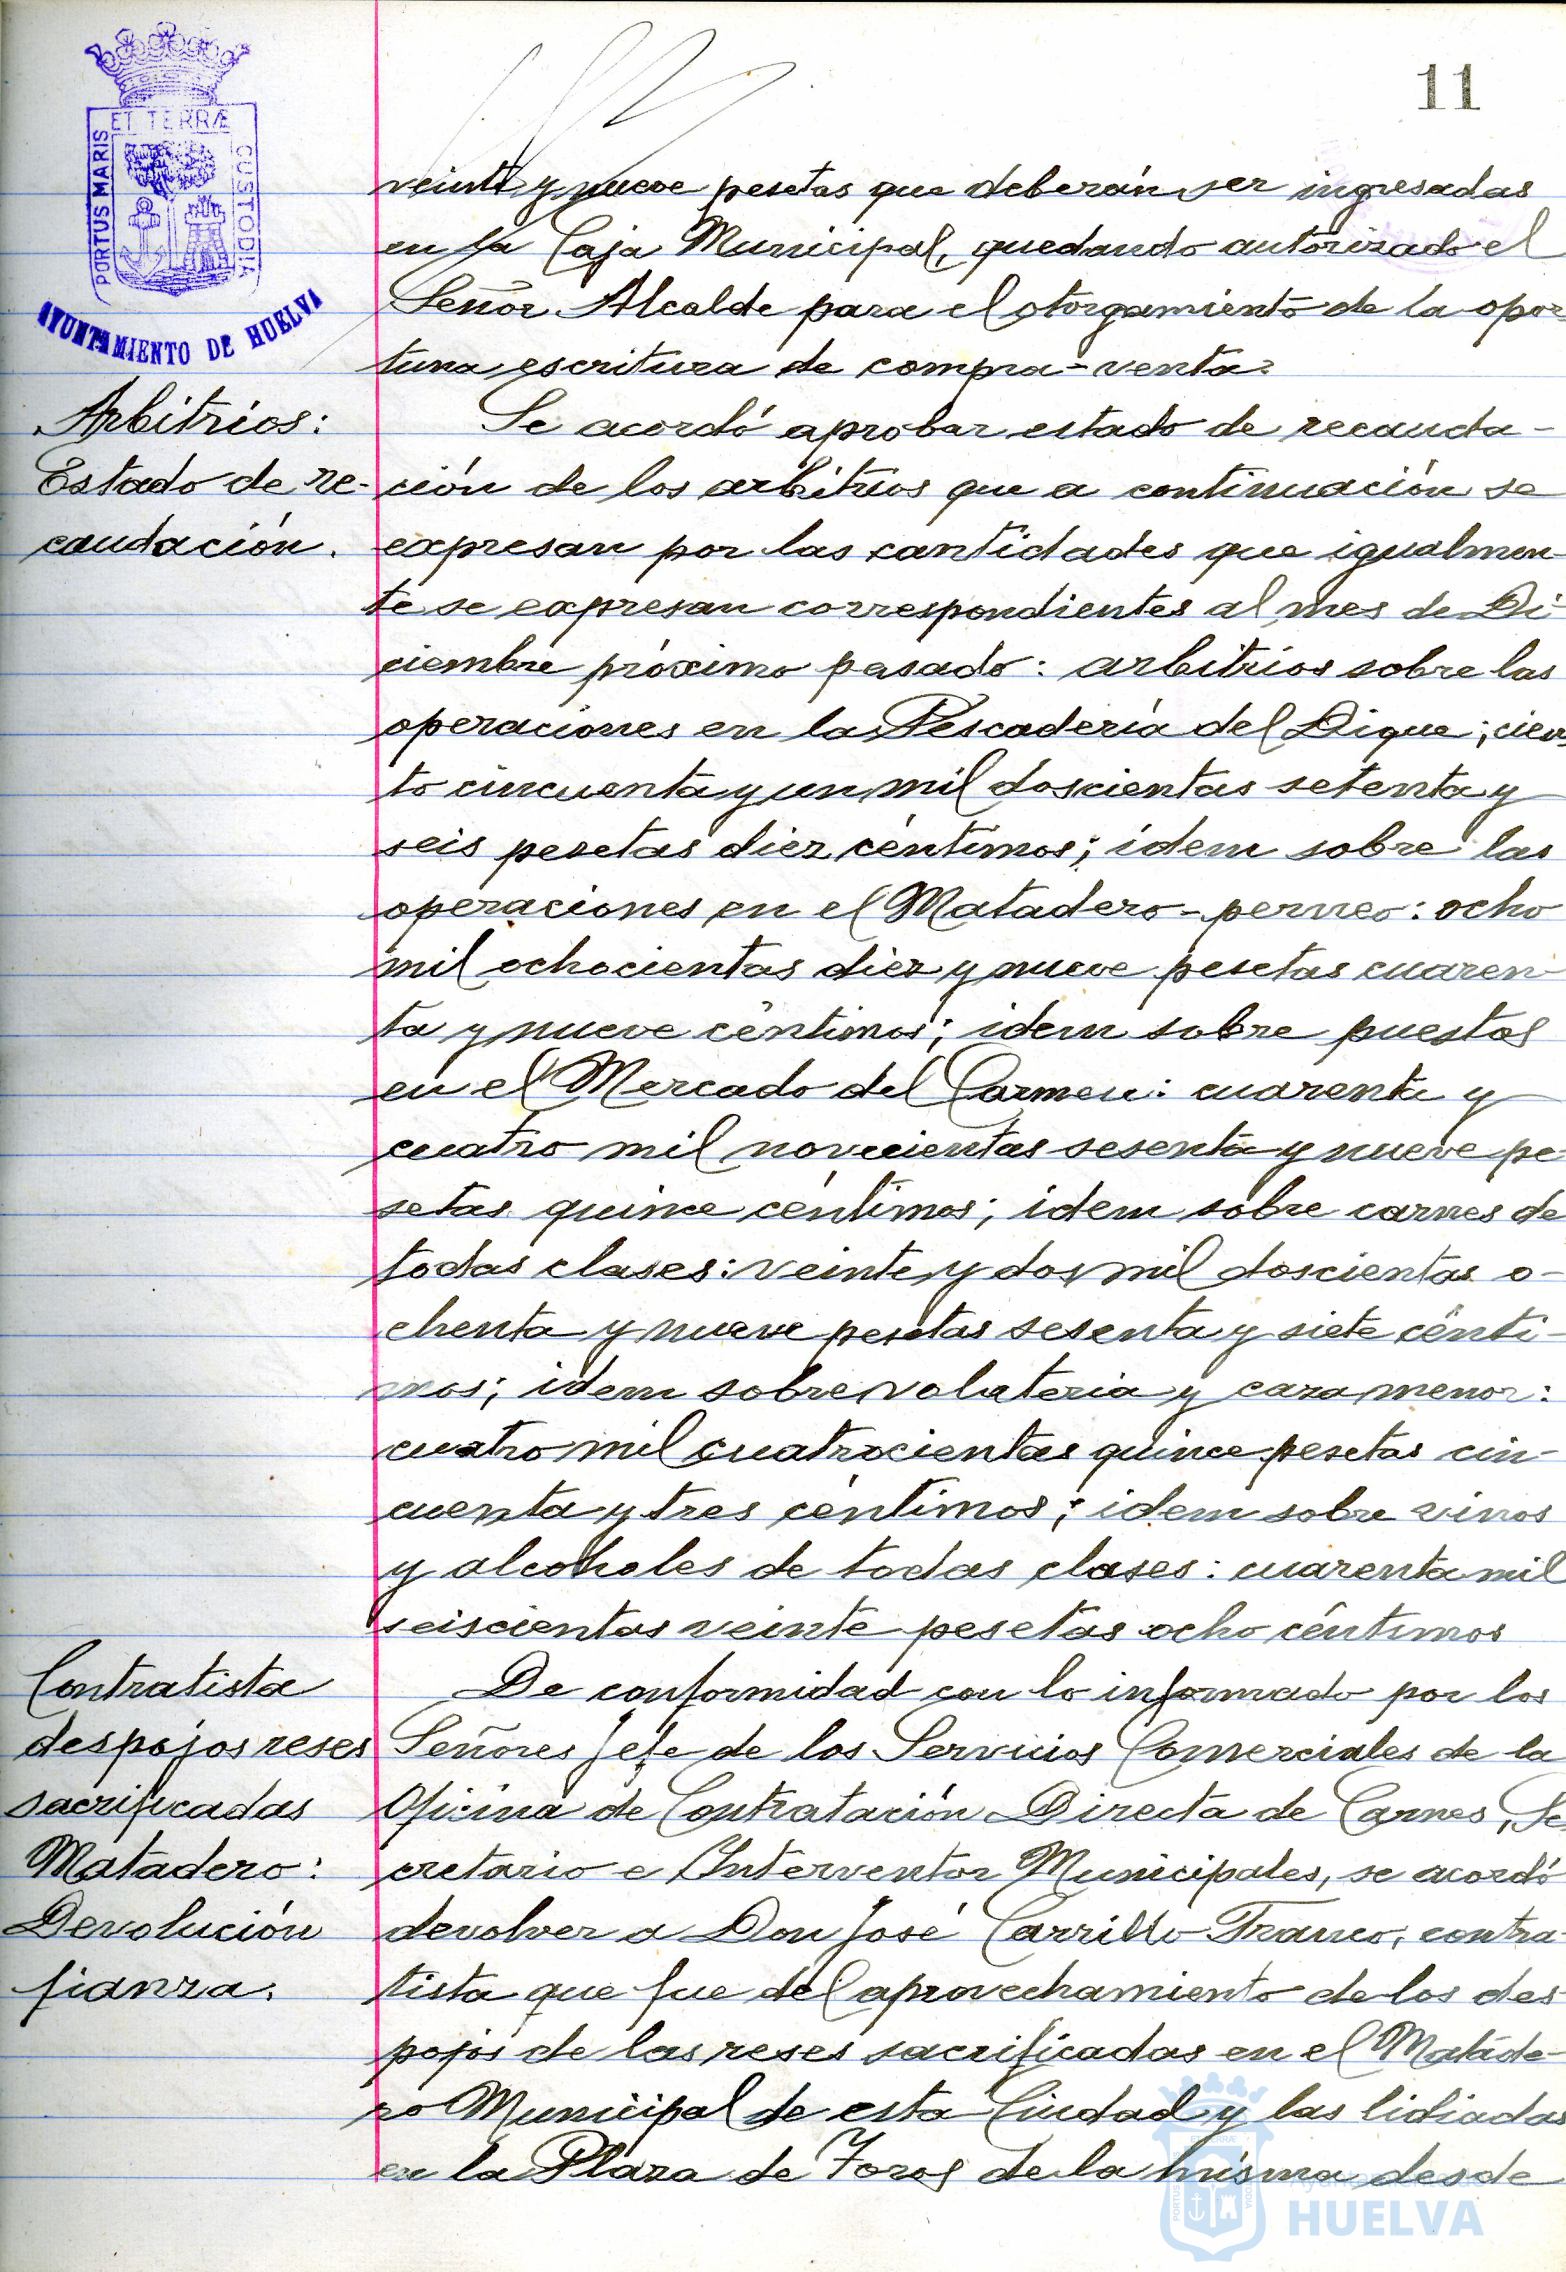 11
ET TERRÆ
PORTUS MARIS
CUSTODIA
AYUNTAMIENTO DE HUELVA
veinte y nueve pesetas que deberán ser ingresadas
en la Caja Municipal, quedando autorizado el
Señor Alcalde para el otorgamiento de la opor
tuna escritura de compra-venta.
Arbitrios:
Estado de re-
caudación.
Se acordó aprobar estado de recauda-
ción de los arbitrios que a continuación se
expresan por las cantidades que igualmen-
te se expresan correspondientes al mes de Di-
ciembre próximo pasado: arbitrios sobre las
operaciones en la Pescadería del Dique; cien
to cincuenta y un mil doscientas setenta y
seis pesetas diez céntimos; idem sobre las
operaciones en el Matadero-perneo: ocho
mil ochocientas diez y nueve pesetas cuaren-
ta y nueve céntimos; idem sobre puestos
en el Mercado del Carmen: cuarenta y
cuatro mil novecientas sesenta y nueve pe-
setas quince céntimos; idem sobre carnes de
todas clases: veinte y dos mil doscientas o-
chenta y nueve pesetas sesenta y siete cénti-
mos; idem sobre volatería y caza menor:
cuatro mil cuatrocientas quince pesetas cin-
cuenta y tres céntimos; idem sobre vinos
y alcoholes de todas clases: cuarenta mil
seiscientas veinte pesetas ocho céntimos
Contratista
despojos reses
sacrificadas
Matadero:
Devolución
fianza.
De conformidad con lo informado por los
Señores Jefe de los Servicios Comerciales de la
Oficina de Contratación Directa de Carnes, Se
cretario e Interventor Municipales, se acordó
devolver a Don José Carrillo Franco, contra-
tista que fue del aprovechamiento de los des-
pojos de las reses sacrificadas en el Matade-
ro Municipal de esta Ciudad y las lidiadas
en la Plaza de Toros de la misma desde
Ayuntamiento de
HUELVA